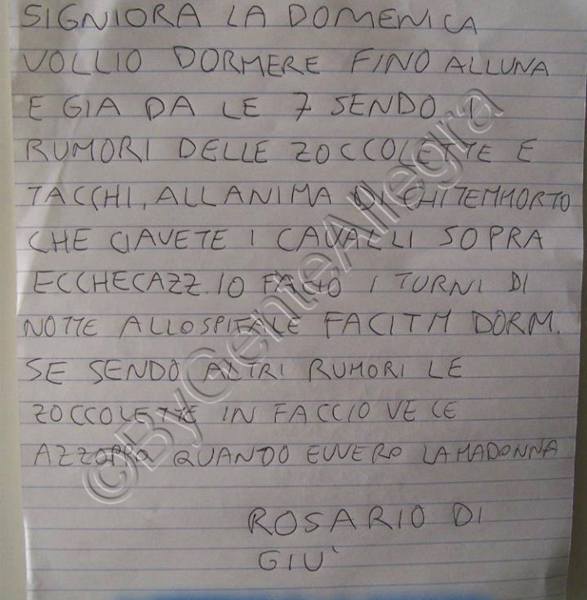 SIGNIORA LA DOMENICA
VOLLIO DORMERE FINO ALLUNA
E GIA DA LE 7 SENDO I
RUMORI DELLE ZOCCOLETTE E
TACCHI, ALLANIMA DI CHITEMMORTO
CHE CIAVETE I CAVALLI SOPRA
ECCHECAZZ. IO FACIO I TURNI DI
NOTTE ALLOSPITALE FACITM DORM.
SE SENDO ALTRI RUMORI LE
ZOCCOLETTE IN FACCIO VE LE
AZZOPPO QUANDO EVVERO LAMADONNA
ROSARIO DI
GIU'
©ByGenteAllegra